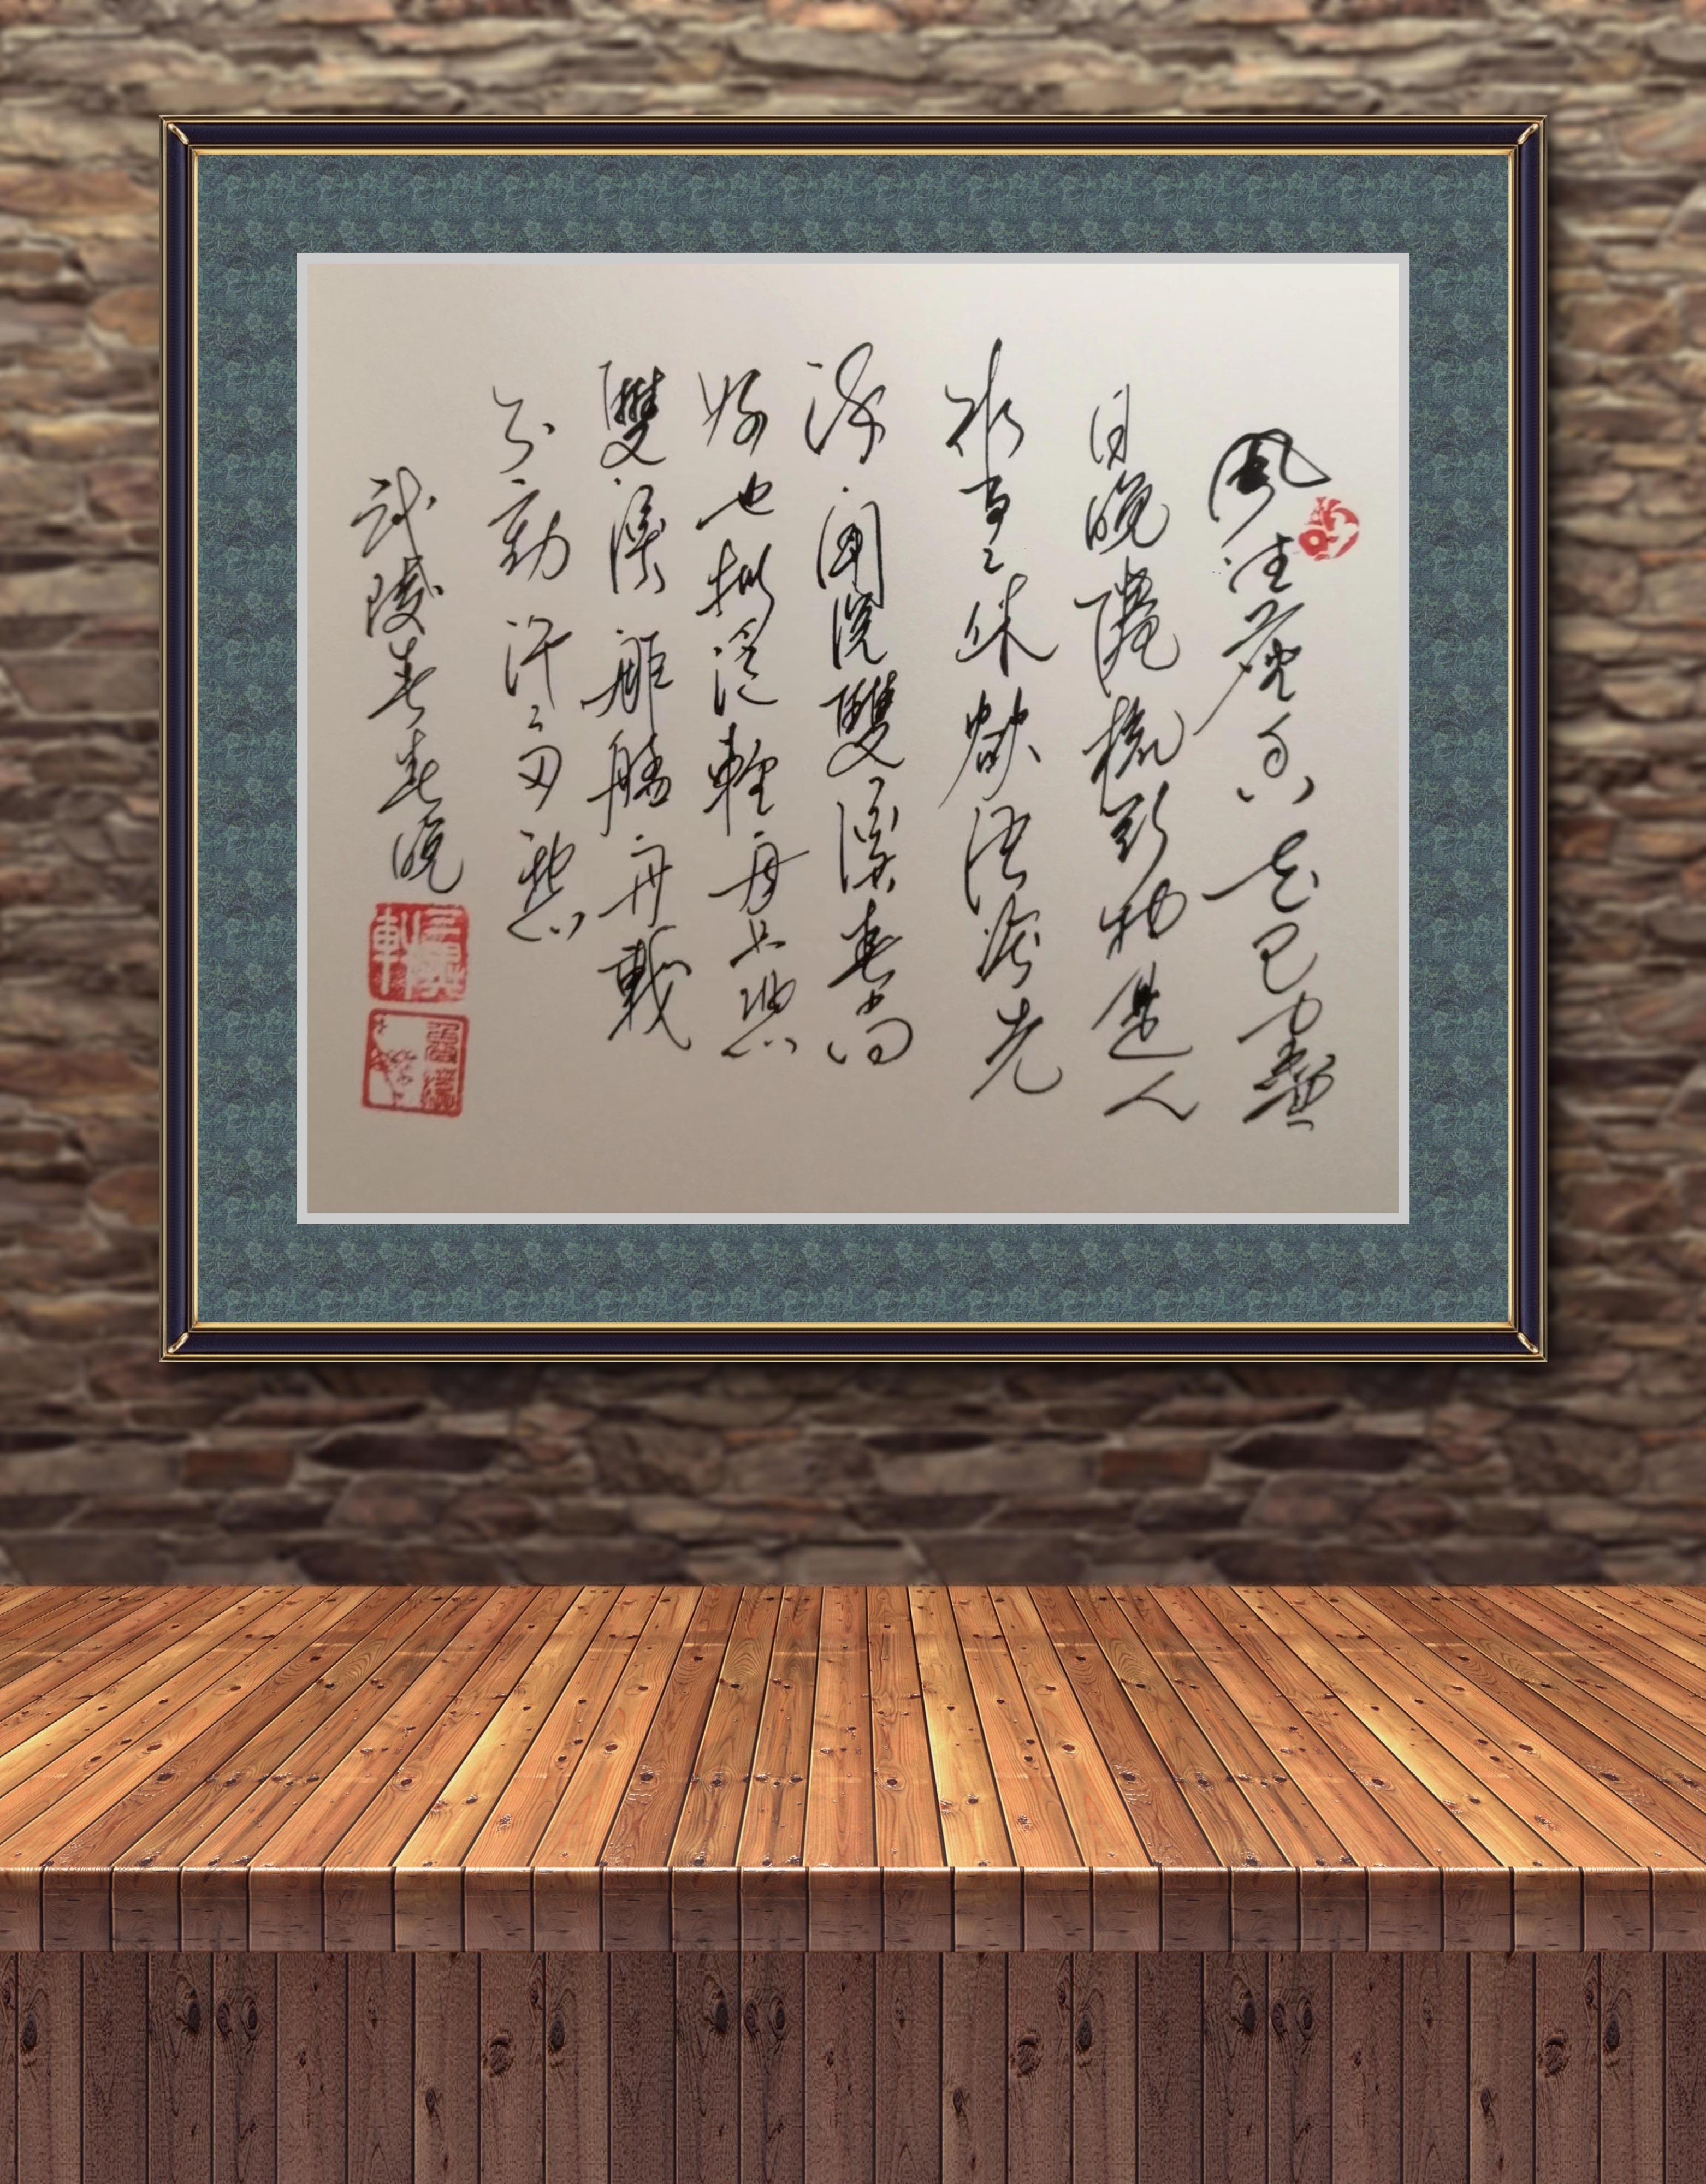 風住塵香花已盡
日晚梳頭物是人
非事〻休欲語淚先
流聞說雙溪春尚
好也擬泛輕舟只恐
雙溪舴艋舟載
不動許多愁
武陵春春晚